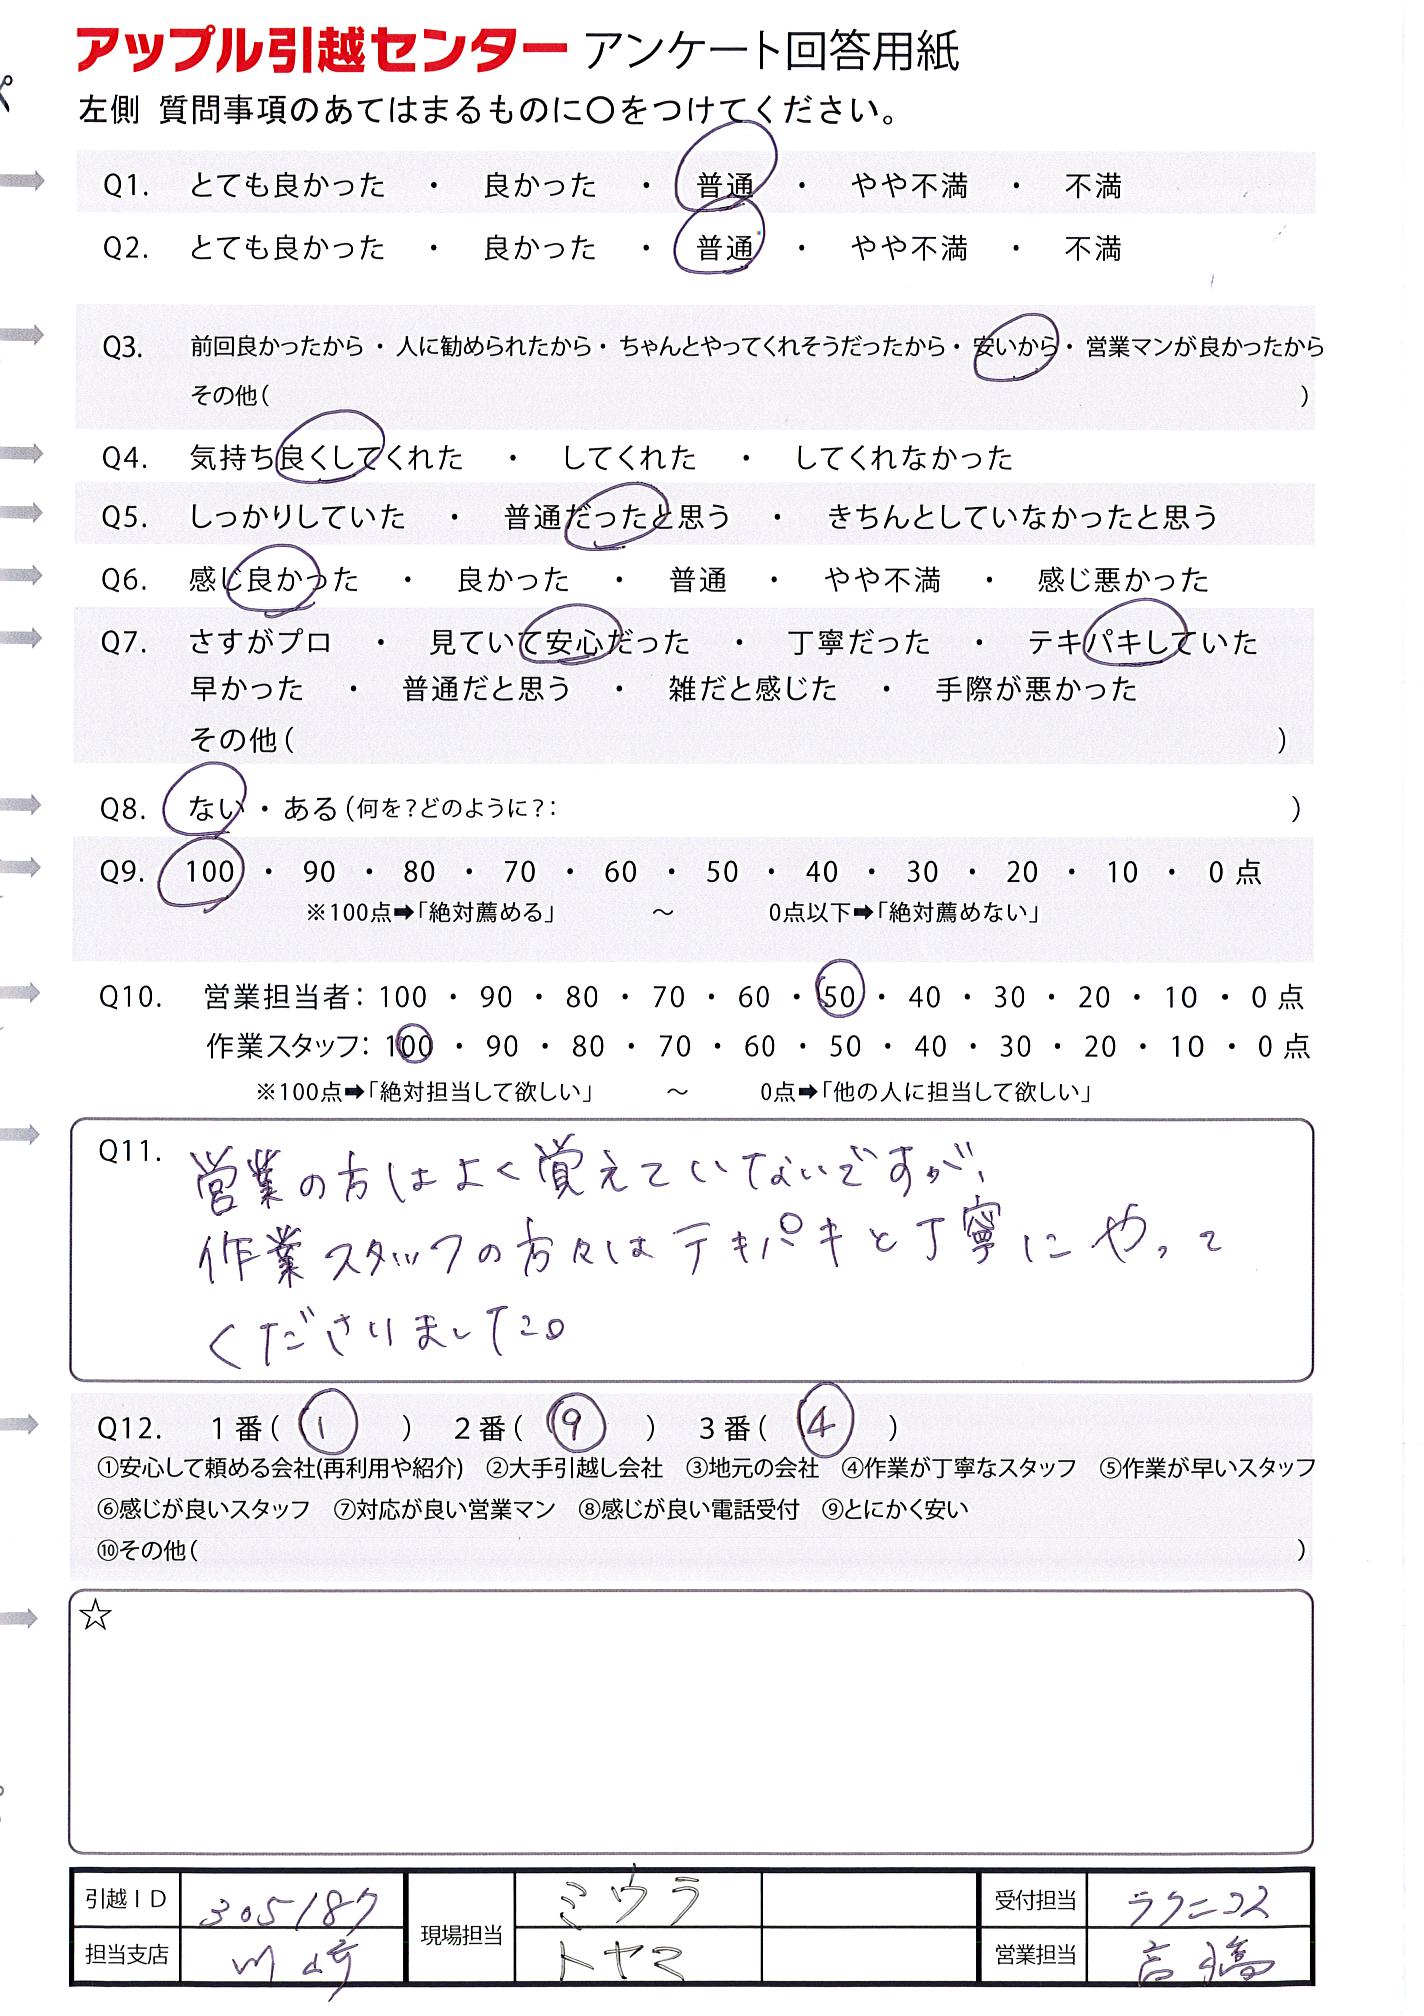 アップル引越センター アンケート回答用紙
左側 質問事項のあてはまるものに〇をつけてください。
Q1. とても良かった ・ 良かった ・ 普通 ・ やや不満 ・ 不満
Q2. とても良かった ・ 良かった ・ 普通 ・ やや不満 ・ 不満
Q3. 前回良かったから・人に勧められたから・ちゃんとやってくれそうだったから・安いから・営業マンが良かったから
その他( )
Q4. 気持ち良くしてくれた ・ してくれた ・ してくれなかった
Q5. しっかりしていた ・ 普通だったと思う ・ きちんとしていなかったと思う
Q6. 感じ良かった ・ 良かった ・ 普通 ・ やや不満 ・ 感じ悪かった
Q7. さすがプロ ・ 見ていて安心だった ・ 丁寧だった ・ テキパキしていた
早かった ・ 普通だと思う ・ 雑だと感じた ・ 手際が悪かった
その他( )
Q8. ない・ある(何を?どのように?: )
Q9. 100 ・ 90 ・ 80 ・ 70 ・ 60 ・ 50 ・ 40 ・ 30 ・ 20 ・ 10 ・ 0点
※100点➡「絶対薦める」 ～ 0点以下➡「絶対薦めない」
Q10. 営業担当者: 100 ・ 90 ・ 80 ・ 70 ・ 60 ・ 50 ・ 40 ・ 30 ・ 20 ・ 10 ・ 0点
作業スタッフ: 100 ・ 90 ・ 80 ・ 70 ・ 60 ・ 50 ・ 40 ・ 30 ・ 20 ・ 10 ・ 0点
※100点➡「絶対担当して欲しい」 ～ 0点➡「他の人に担当して欲しい」
Q11. 営業の方はよく覚えていないですが、
作業スタッフの方々はテキパキと丁寧にやって
くださりました。
Q12. 1番( 1 ) 2番( 9 ) 3番( 4 )
①安心して頼める会社(再利用や紹介) ②大手引越し会社 ③地元の会社 ④作業が丁寧なスタッフ ⑤作業が早いスタッフ
⑥感じが良いスタッフ ⑦対応が良い営業マン ⑧感じが良い電話受付 ⑨とにかく安い
⑩その他( )
☆
引越ID 305187 現場担当 ミウラ 受付担当 ラクニコス
担当支店 川崎 トヤマ 営業担当 高橋